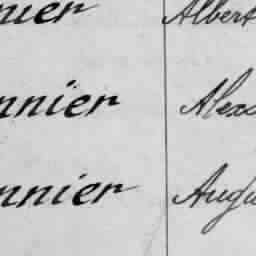 nier Albert
nnier Alexa
nnier Augu